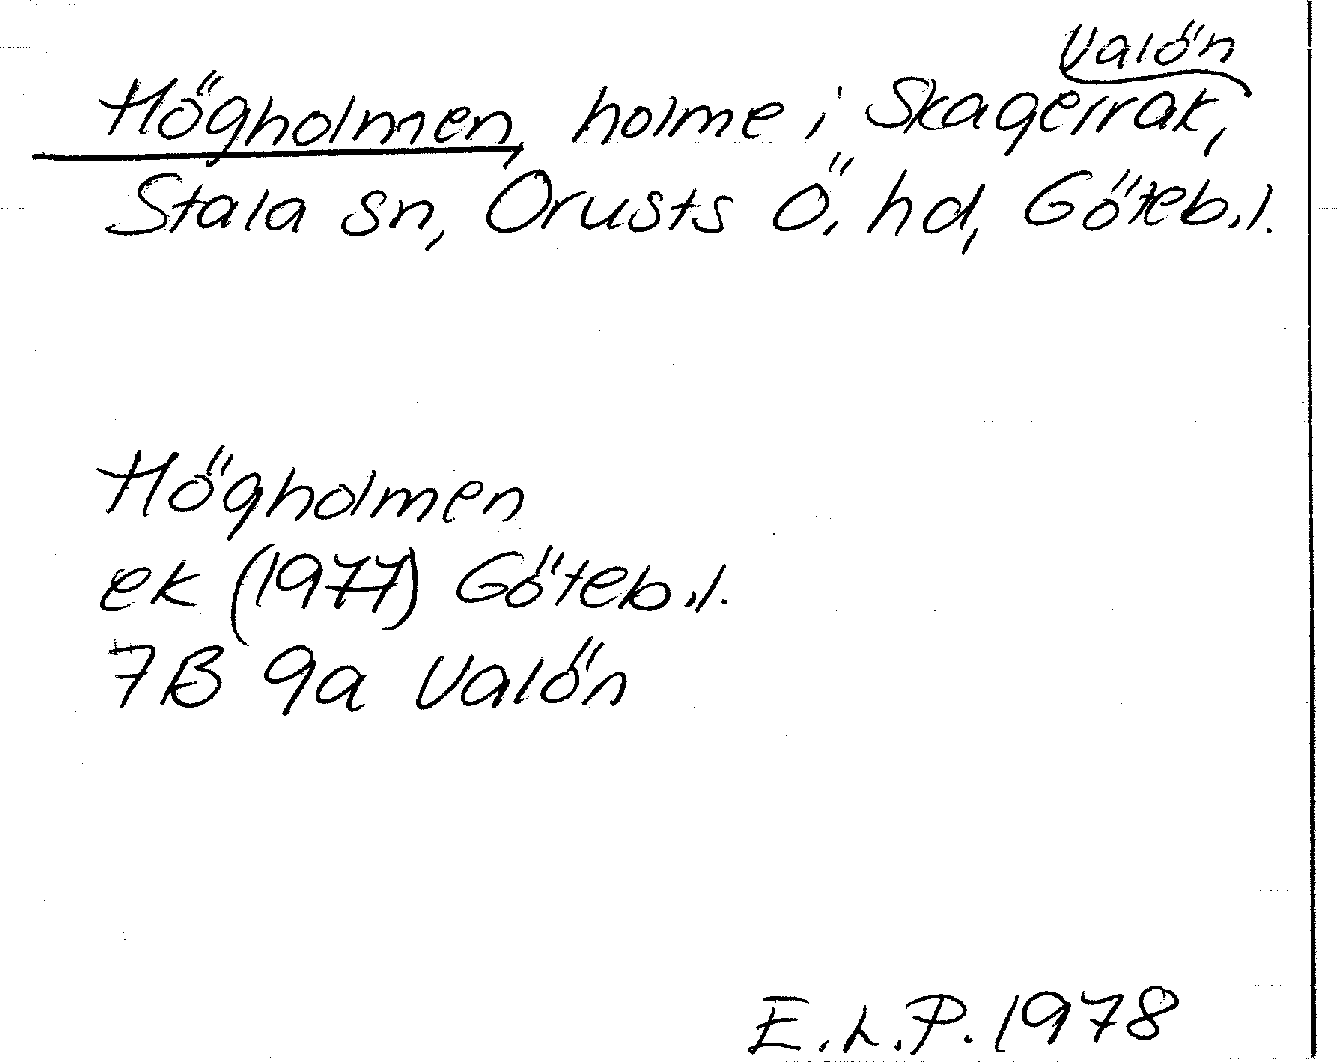 Valön
Högholmen, holme i Skagerrak,
Stala sn, Orusts Ö. hd, Göteb.l.
Högholmen
ek (1977) Göteb.l.
7B 9a Valön
E.L.P. 1978